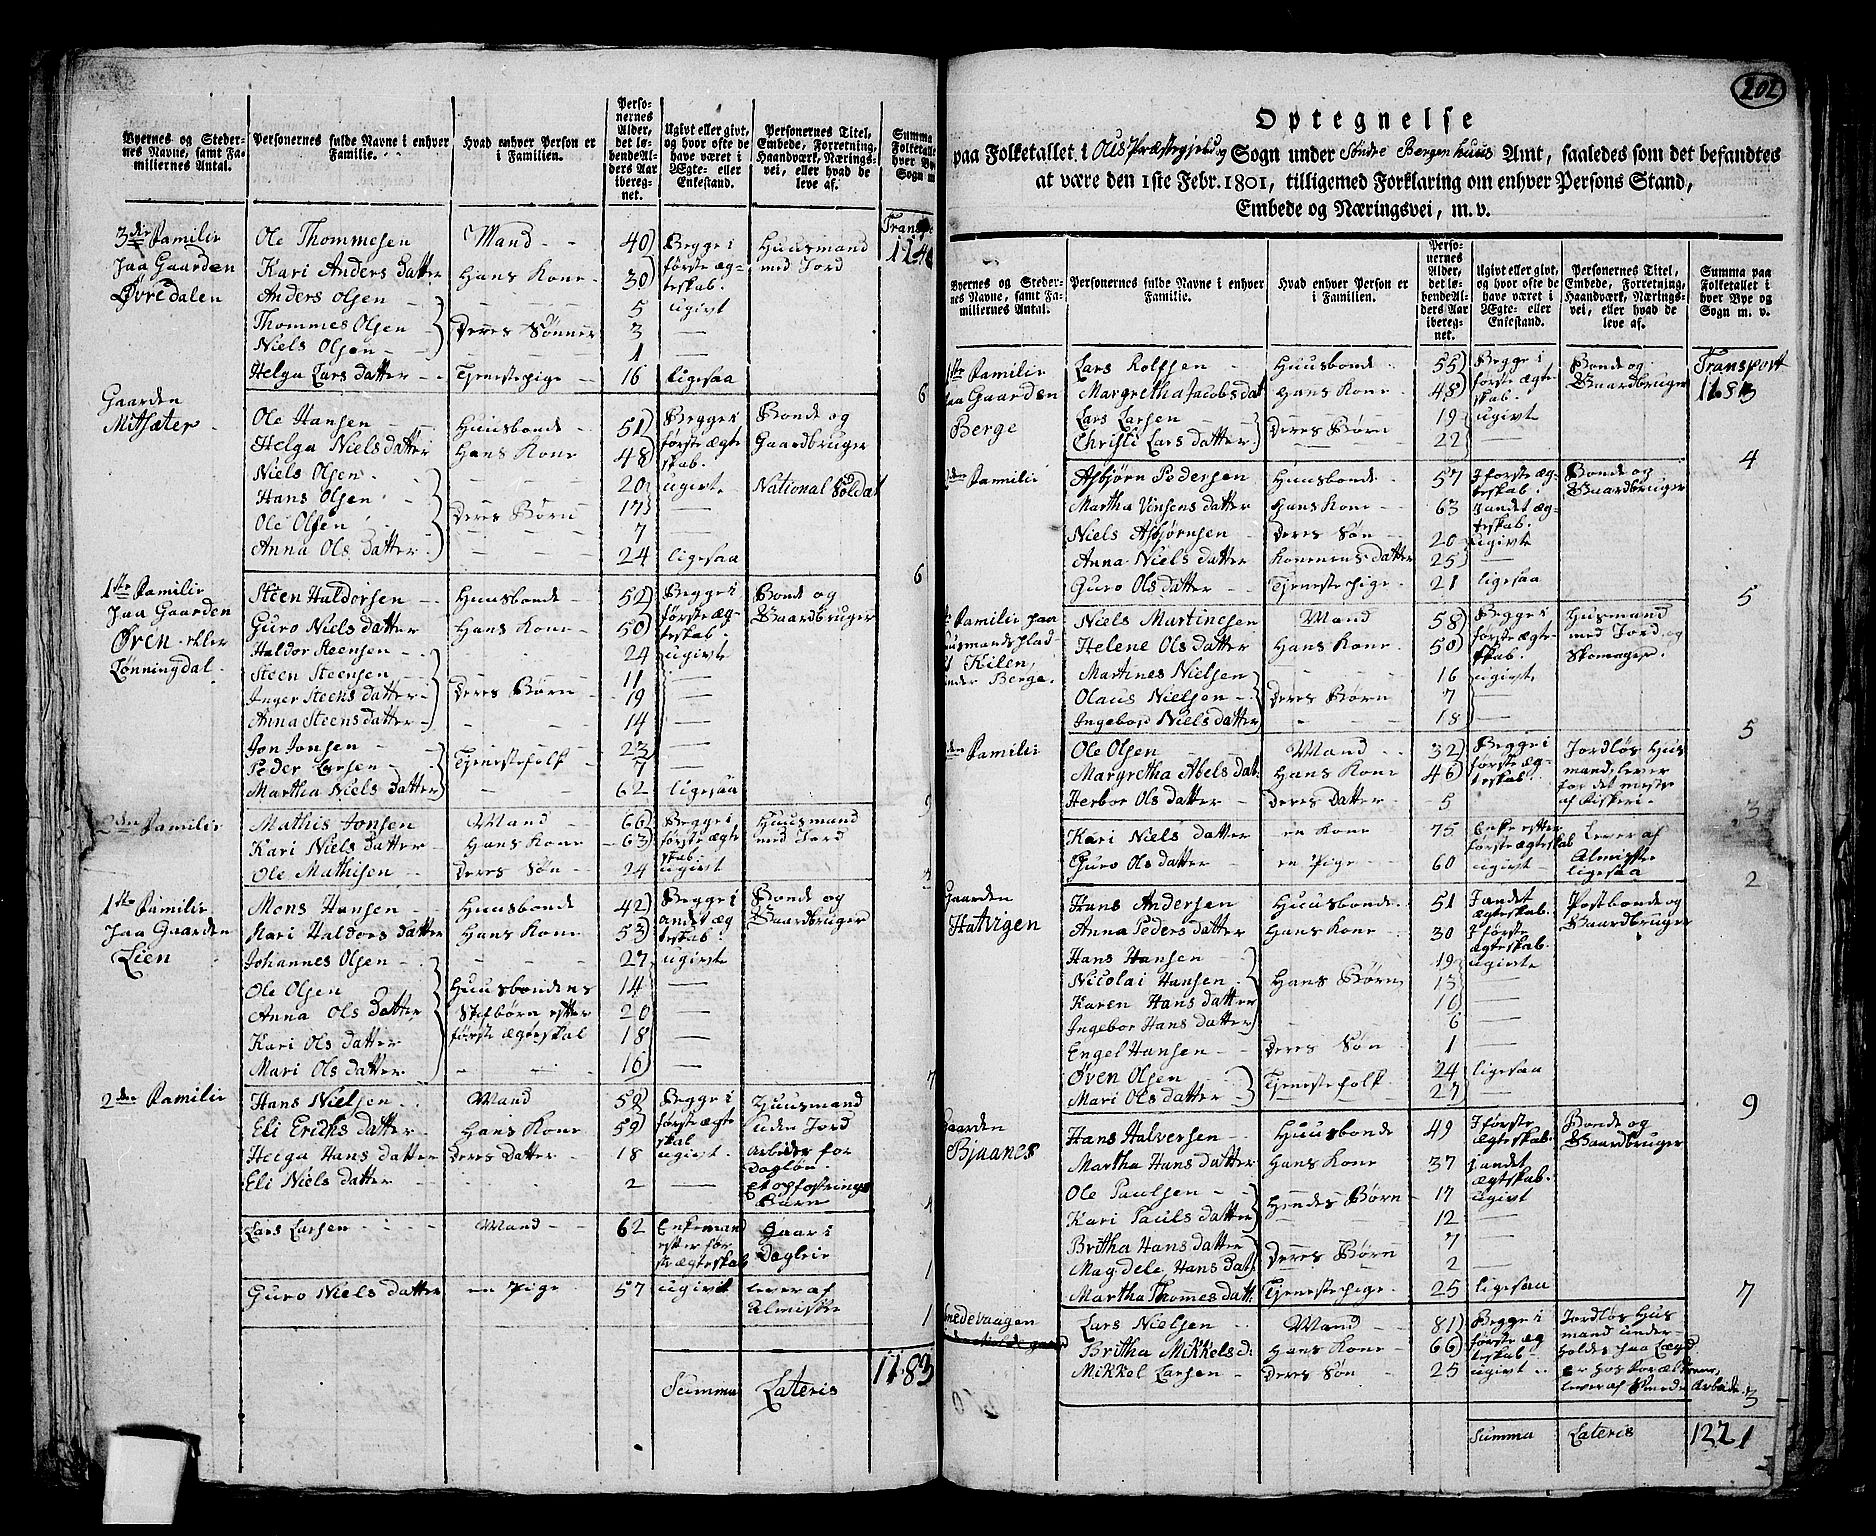 Byernes og Steder- Personernes fulde Navne i enhver Hvad enhver Person er Perso- Ugivt eller givt, Personernes Titel, Summa
nes Navne, samt Fa- Familie. i Familien. nernes og hvor ofte de Embede, Forretning, Folketallet
miliernes Antal. Alder, det lø- bende Al- ders Aar iberegnet. have været i Ægte- eller Enkestand. Haandværk, Nærings- vei, eller hvad de leve af. hver By Sogn m
3die Familie Ole Thommesen Mand 40 Begge i Huusmand
paa Gaarden Kari Anders Datter Hans Kone 30 første æg- med Jord
Øvredalen Anders Olsen 5 teskab. ugivt
Thommes Olsen Deres Sønner 3 —
Niels Olsen 1 —
Helga Lars datter Tjenestepige 16 ligesaa 6
Gaarden
Mitsæter Ole Hansen Huusbonde 51 Begge i Bonde og
Helga Niels datter Hans Kone 48 første ægte skab. Gaardbruger
Niels Olsen 20 ugivte National Soldat
Hans Olsen 17 —
Ole Olsen Deres Børn 7 —
Anna Ols Datter 24 ligesaa 6
1ste Familie Steen Haldorsen Huusbonde 52 Begge i Bonde og
paa Gaarden Guro Niels datter Hans Kone 50 første æg- teskab. Gaardbruger
Øven eller Haldor Steensen 24 ugivte
Lønningdal Steen Steensen 11 —
Inger Steens datter Deres Børn 19 —
Anna Steens datter 14 —
Jon Jonsen 23 —
Peder Larsen Tjenestefolk 7 —
Martha Niels Datter 62 ligesaa 9
2den Familie Mathis Jonsen Mand 66 Begge i Huusmand
Kari Niels Datter Hans Kone 63 første ægte skab. med Jord
Ole Mathisen Deres Søn 24 ugivt
1ste Familie Mons Hansen Huusbonde 42 Begge i Bonde og
paa Gaarden Mari Haldors datter Hans Kone 53 andet æg teskab. Gaardbruger
Lien Johannes Olsen 27 ugivte
Ole Olsen Huusbondens 14 —
Anna Ols Datter Stifbørn efter 20 —
Kari Ols datter første ægteskab 18 —
Mari Ols datter 16 — 7
2den Familie Hans Nielsen Mand 58 Begge i Huusmand
Eli Erichs datter Hans Kone 59 første ægte skab uden Jord
Helga Hans datter Deres Datter 18 ugivt arbeider for Dagløn
Eli Niels datter 2 — Et opfostrings Barn 4
Lars Larsen Mand 62 Enkemand efter før ste ægteskab Gaar i Dagleie 1
Guro Niels datter en Pige 57 ugivt lever af Almisse 1
Summa Lateris 1183
202
Optegnelse
paa Folketallet i Ous Præstegield og Sogn under Søndre Bergenhuus Amt, saaledes som det befandtes
at være den 1ste Febr. 1801, tilligemed Forklaring om enhver Persons Stand,
Embede og Næringsvei, m. v.
Byernes og Steder- Personernes fulde Navne i enhver Hvad enhver Person er Perso- Ugivt eller givt, Personernes Titel, Summa paa
nes Navne, samt Fa- Familie. i Familien. nernes og hvor ofte de Embede, Forretning, Folketallet i
miliernes Antal. Alder, det lø- bende Al- ders Aar iberegnet. have været i Ægte- eller Enkestand. Haandværk, Nærings- vei, eller hvad de leve af. hver Bye og Sogn m. v.
1ste Familie Lars Rolfsen Huusbonde 55 Begge i Bonde og Transport
paa Gaarden Margretha Jacobs dat Hans Kone 48 første ægte skab. Gaardbruger 1183
Berge Lars Larsen Deres Børn 19 ugivt
Christi Lars datter 22 — 4
2den Familie Asbjørn Pedersen Huusbonde 57 I første æg- teskab. Bonde og
Martha Vinsens datter Hans Kone 63 I andet æg- teskab. Gaardbruger
Niels Asbjørnsen Deres Søn 20 ugivte
Anna Niels datter Konenens datter 25 —
Guro Ols datter Tjenestepige 21 ligesaa 5
Familie paa Niels Martinesen Mand 58 Begge i Husmand
Huusmandsplad Helene Ols datter Hans Kone 50 første ægte- skab. med Jord og
Kilen, Martines Nielsen 16 ugivte Skomager.
under Berge. Olaus Nielsen Deres Børn 7 —
Ingebor Niels datter 18 — 5
Familie Ole Olsen Mand 32 Begge i Jordløs Hus
Margretha Abels dat. Hans Kone 46 første æg- teskab. mand, lever
Herbor Ols datter Deres Datter 5 for det meste af Fiskeri. 3
Kari Niels datter en Kone 75 Enke efter første ægteskab Lever af
Guro Ols datter en Pige 60 ugivt Almisse ligesaa 2
Gaarden Hans Andersen Huusbonde 51 I andet ægteskab. Postbonde og
Hatvigen Anna Peders datter Hans Kone 30 I første ægteskab. Gaardbruger
Hans Hansen 19 ugivte
Nicolai Hansen Hans Børn 13
Karen Hans datter 10 —
Ingebor Hans datter 6 —
Engel Hansen Deres Søn 1 —
Øven Olsen Tjenestefolk 24 ligesaa
Mari Ols datter 27 — 9
Gaarden Hans Halversen Huusbonde 49 I første ægteskab. Bonde og
Bjaanes Martha Hans datter Hans Kone 37 I andet ægteskab. Gaardbruger
Ole Paulsen Hendes Børn 17 ugivt
Kari Pauls datter 12 —
Britha Hans datter Deres Børn 7 —
Magdele Hans dat. 2 —
Martha Thommes datt. Tjenestepige 25 ligesaa 7
Smedevaagen Lars Nielsen Mand 81 Begge i Jordløs Hus
Britha Mikkels d. Hans Kone 66 første æg teskab mand under- holdes paa Lægd
Mikkel Larsen Deres Søn 25 ugivt er hos Forældrene, lever af Smede Arbeide. 3
Summa Lateris 1221